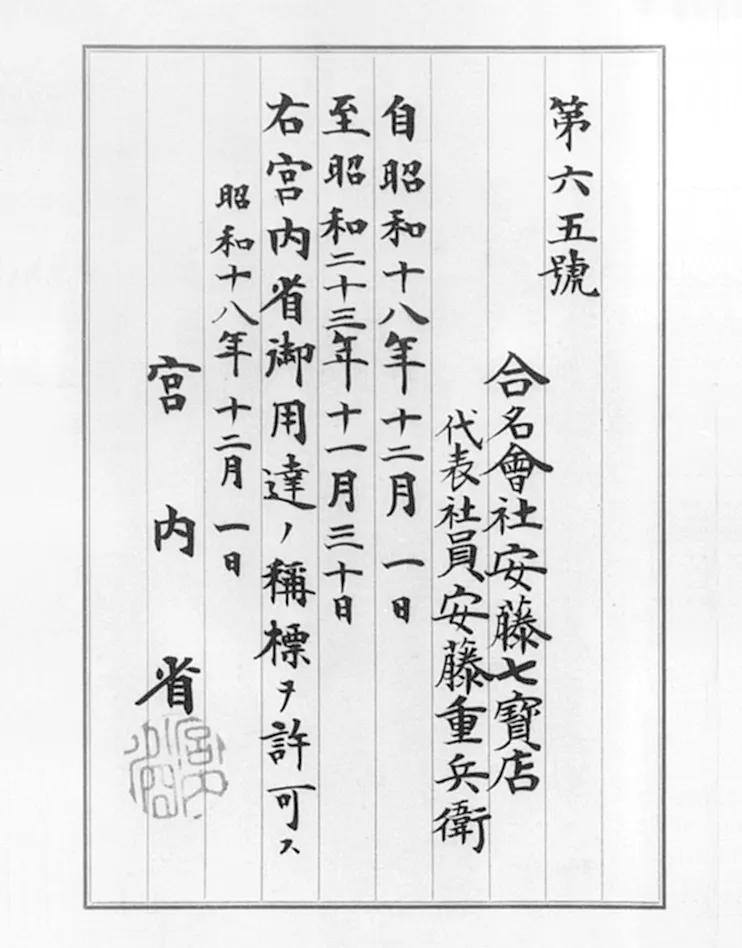 第六五號
合名會社安藤七寶店
代表社員安藤重兵衛
自昭和十八年十二月一日
至昭和二十三年十一月三十日
右宮内省御用達ノ稱標ヲ許可ス
昭和十八年十二月一日
宮内省